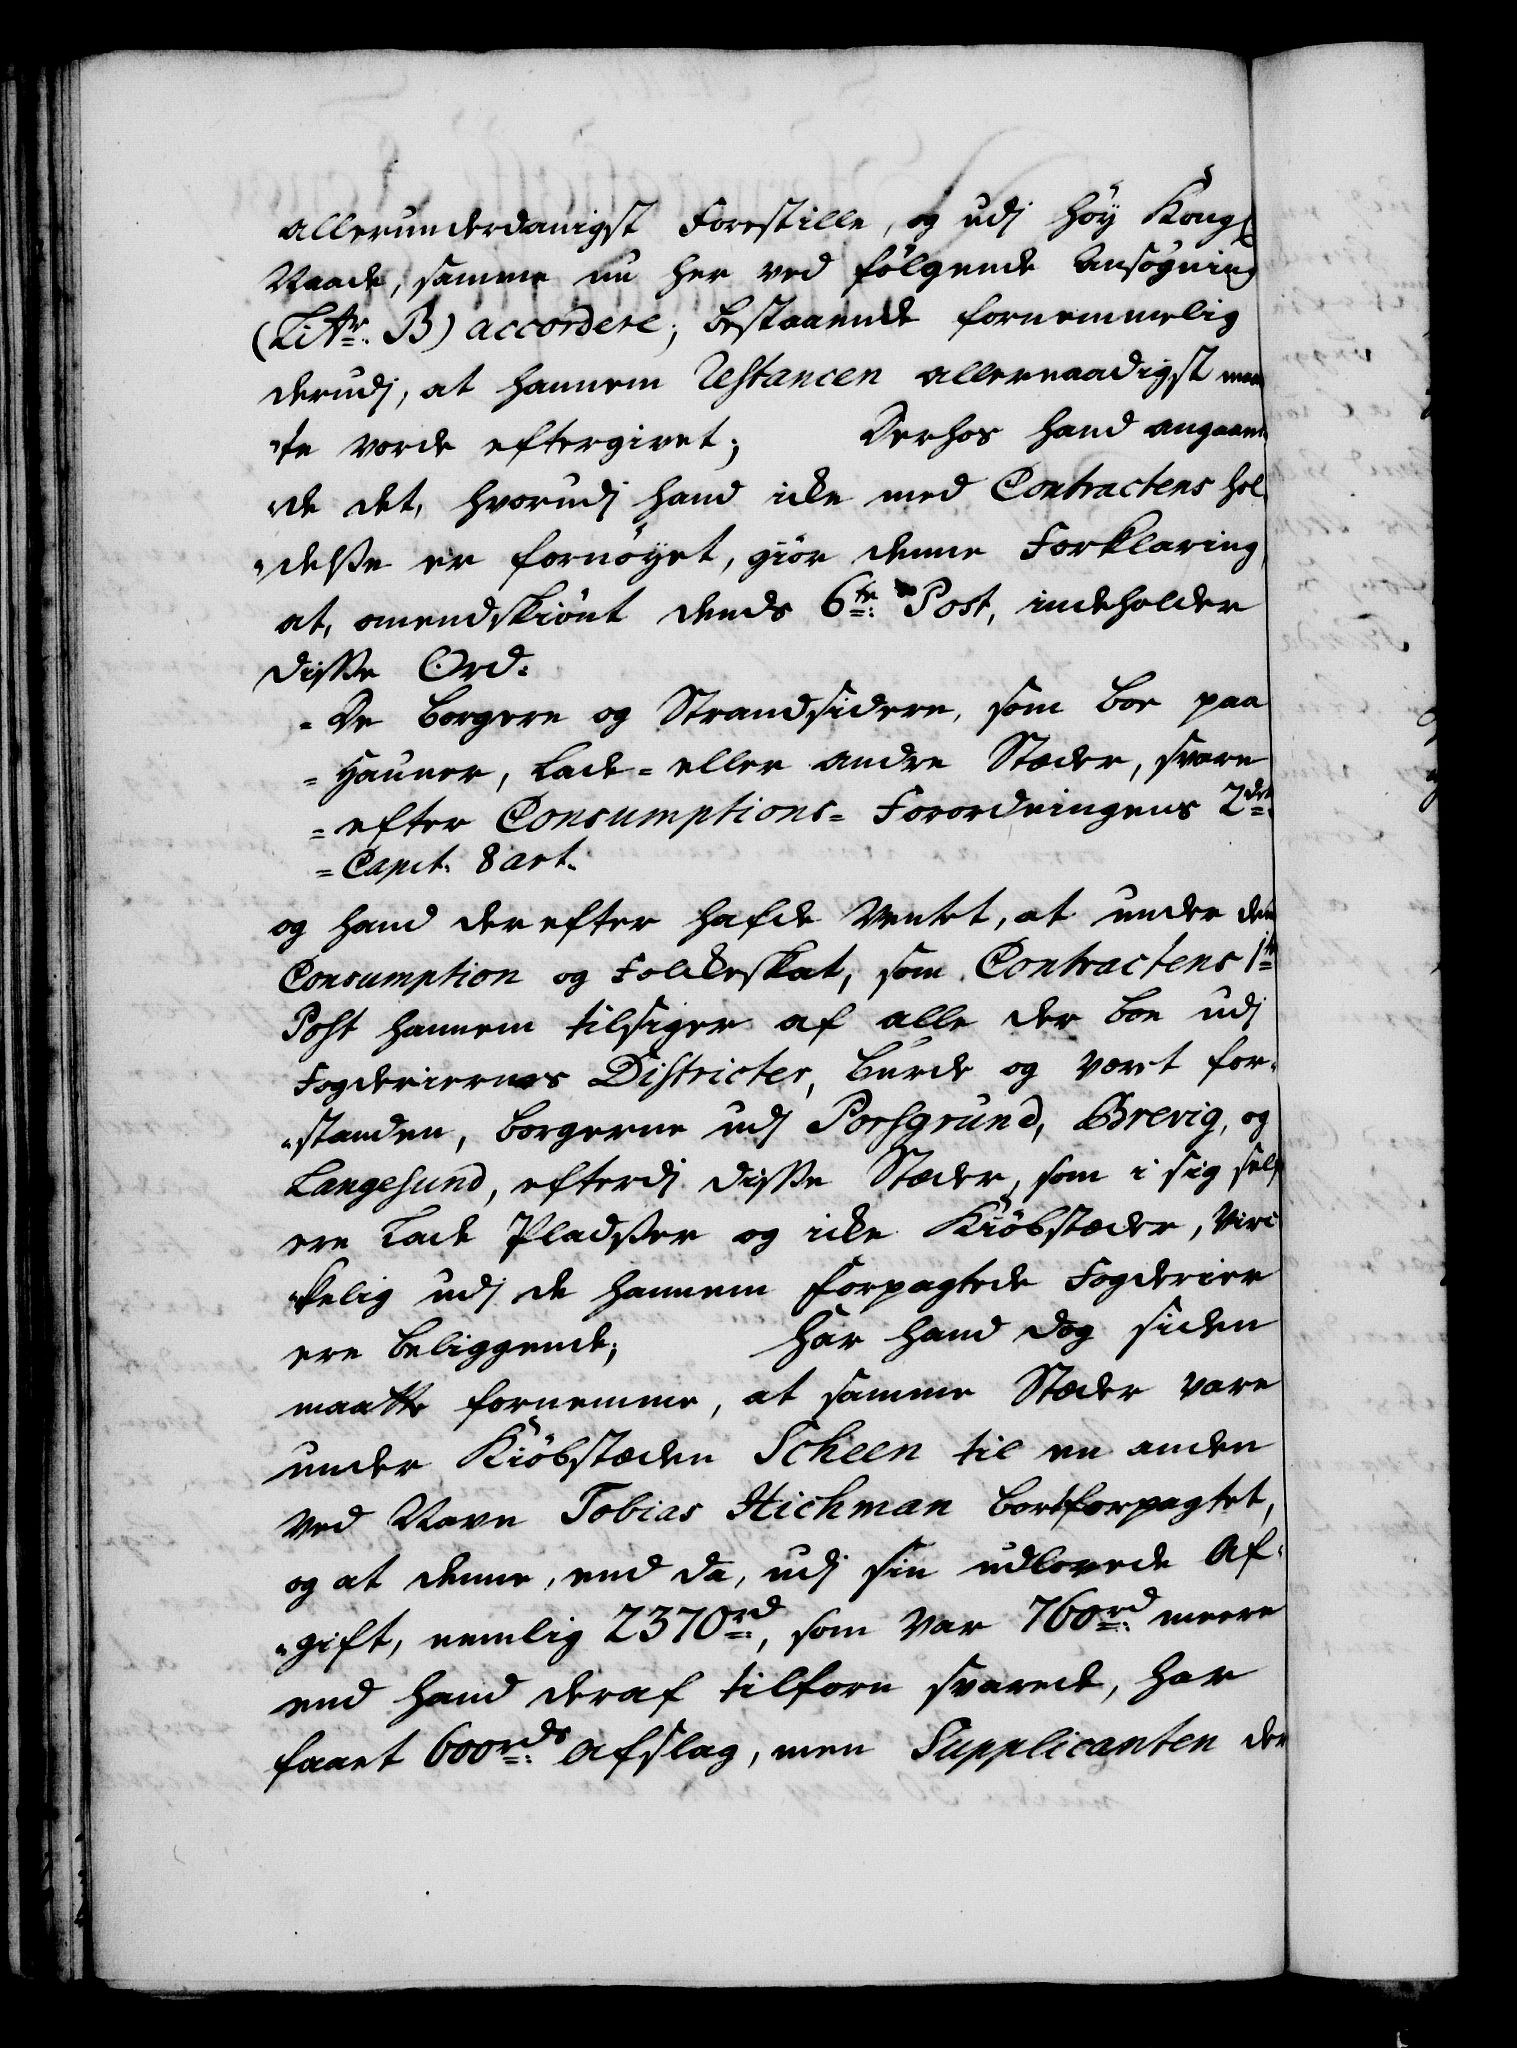 allerunderdanigst Forestille, og udj höy Kongl
Naade, samme nu her ved fölgende Ansögning
(Littr. B) accordere; bestaaende fornemmelig
derudj, at hannem Restancen allernaadigst maa
"te vorde eftergivet; Derhos hand angaaen
"de det, hvorudj hand icke med Contractens hol
"delsse er fornöyet, giör denne Forklaring,
at, omendskiönt dends 6te Post, indeholder
disse Ord:
= De borgere og Strandsidere, som boe paa
= Hauner, Lade = eller andre Stæder, svare
= efter Consumptions = Forordningens 2det
= Capit: 8 art.
og hand derefter hafde Ventet, at under den
Consumption og Folckeskat, som Contractens 1te
Post hannem tilsiger af alle der boe udj
Fogderiernes Districter, burde og været for=
"standen, borgerne udj Porsgrund, Brevig, og
Langesund, efterdj disse Stæder, som i sig self
ere Lade Pladsser og icke Kiöbstæder, Virc
"kelig udj de hannem forpagtede Fogderier
ere beliggende; har hand dog siden
maatte fornemme, at samme Stæder vare
under Kiöbstæden Scheen til en anden
ved Navn Tobias Hichman bortforpagtet,
og at denne, end da, udj sin udlovede Af=
"gift, nemlig 2370rd, som var 760rd meere
end hand deraf tilforn svarede, har
faaet 600rds Afslag, men Supplicanten der